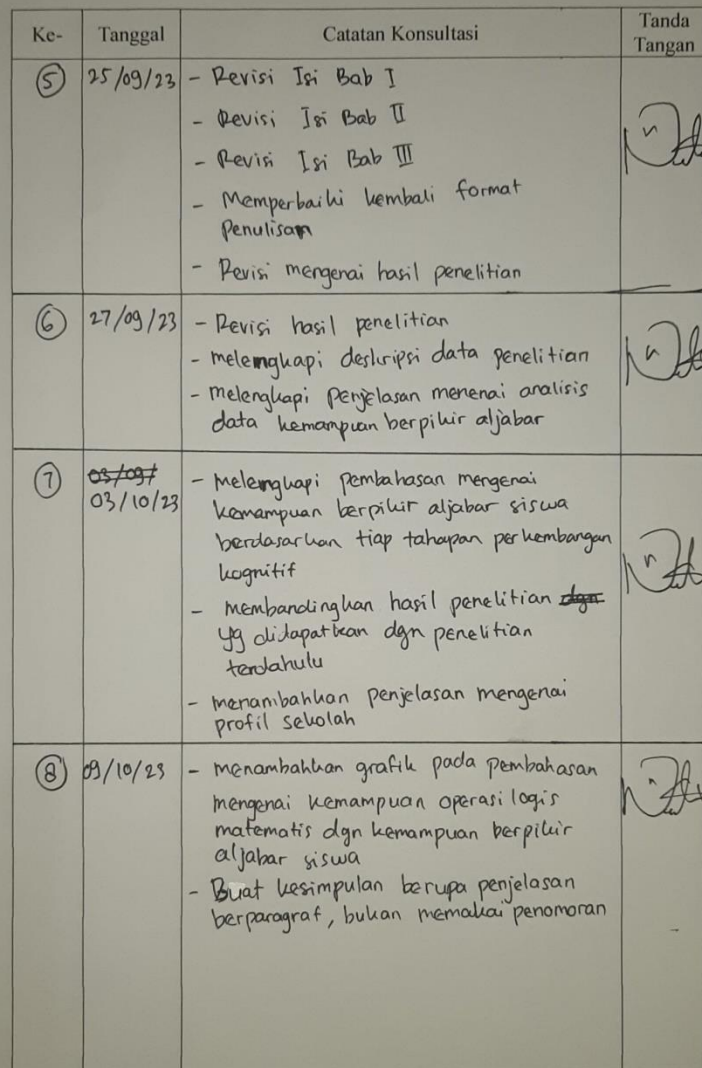 Ke- Tanggal Catatan Konsultasi Tanda Tangan
5 25/09/23 - Revisi Isi Bab I
- Revisi Isi Bab II
- Revisi Isi Bab III
- Memperbaiki kembali format
Penulisan
- Revisi mengenai hasil penelitian
6 27/09/23 - Revisi hasil penelitian
- melengkapi deskripsi data penelitian
- melengkapi Penjelasan menenai analisis
data kemampuan berpikir aljabar
7 03/09/ - melengkapi pembahasan mengenai
03/10/23 kemampuan berpikir aljabar siswa
berdasarkan tiap tahapan perkembangan
kognitif
- membandingkan hasil penelitian dgn
yg didapatkan dgn penelitian
terdahulu
- menambahkan penjelasan mengenai
profil sekolah
8 09/10/23 - menambahkan grafik pada pembahasan
mengenai kemampuan operasi logis
matematis dgn kemampuan berpikir
aljabar siswa
- Buat kesimpulan berupa penjelasan
berparagraf, bukan memakai penomoran